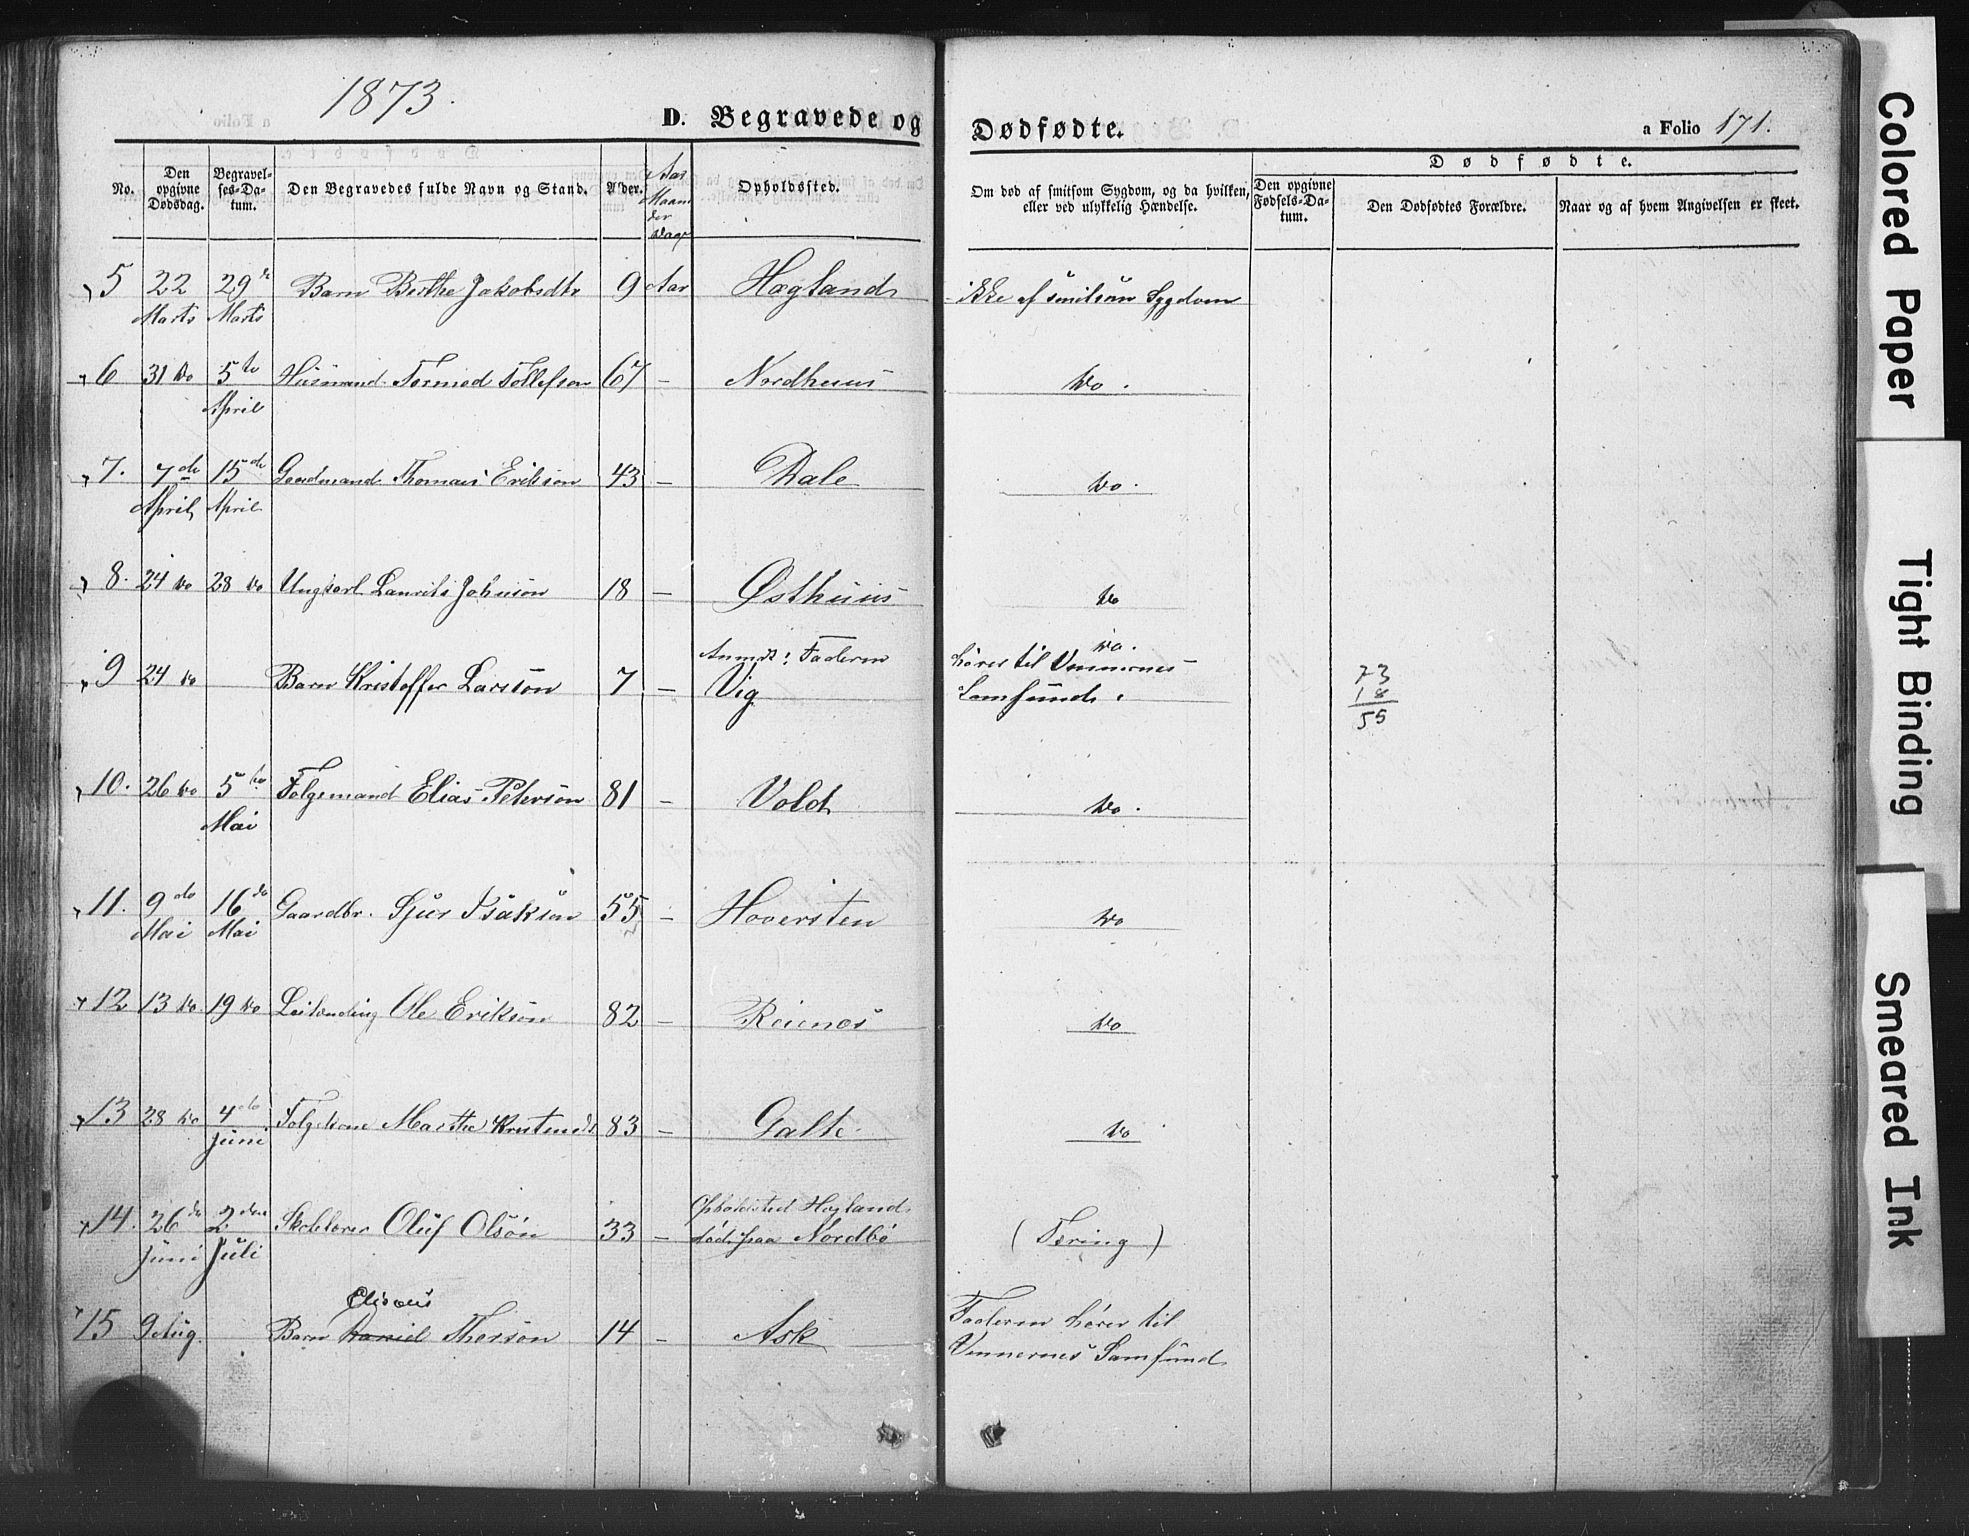 1873.
D. Begravede og Dødfødte.
a Folio 171.
No.
Den opgivne Dødsdag.
Begravelses-Datum.
Den Begravedes fulde Navn og Stand.
Alder.
Aar Maaneder Dage
Opholdssted.
Om død af smitsom Sygdom, og da hvilken, eller ved ulykkelig Hændelse.
Dødfødte.
Den opgivne Fødsels-Datum.
Den Dødfødtes Forældre.
Naar og af hvem Angivelsen er skeet.
5 22 Marts 29de Marts Barn Berthe Jakobsdtr 9 Aar Hogland ikke af smitsom Sygdom
6 31 do 5te April Husmand Tormod Tollefson 67 — Nordhuus do.
7. 7de April 15de April Gaardmand Thomas Erikson 43 — Dale do.
8. 24 do 28 do Ungkarl Laurits Johnson 18 — Østhuus do
9 24 do Barn Kristoffer Larsson 7 — Anmdt: Faderen Vig do. hører til Vennernes Samfund.
73
18
55
10. 26 do 5te Mai Folgemand Elias Peterson 81 — Vold do.
11. 9de Mai 16de Mai Gaardbr. Sjur Isakson 55 — Hoversten do
12 13 do. 19 do Leilænding Ole Erikson 82 — Reienes do
13 28 do 4de Juni Folgekone Marthe Knutsd 83 — Galte do
14. 26de Juni 2den Juli Skolelærer Oluf Olsøn 33 — Opholdsted Hogland, død paa Nordbø (Tæring)
15 9 Aug. Barn Daniel Elisæus Thersøn 14 — Ask Faderen hører til Vennernes Samfund
Colored Paper
Tight Binding
Smeared Ink